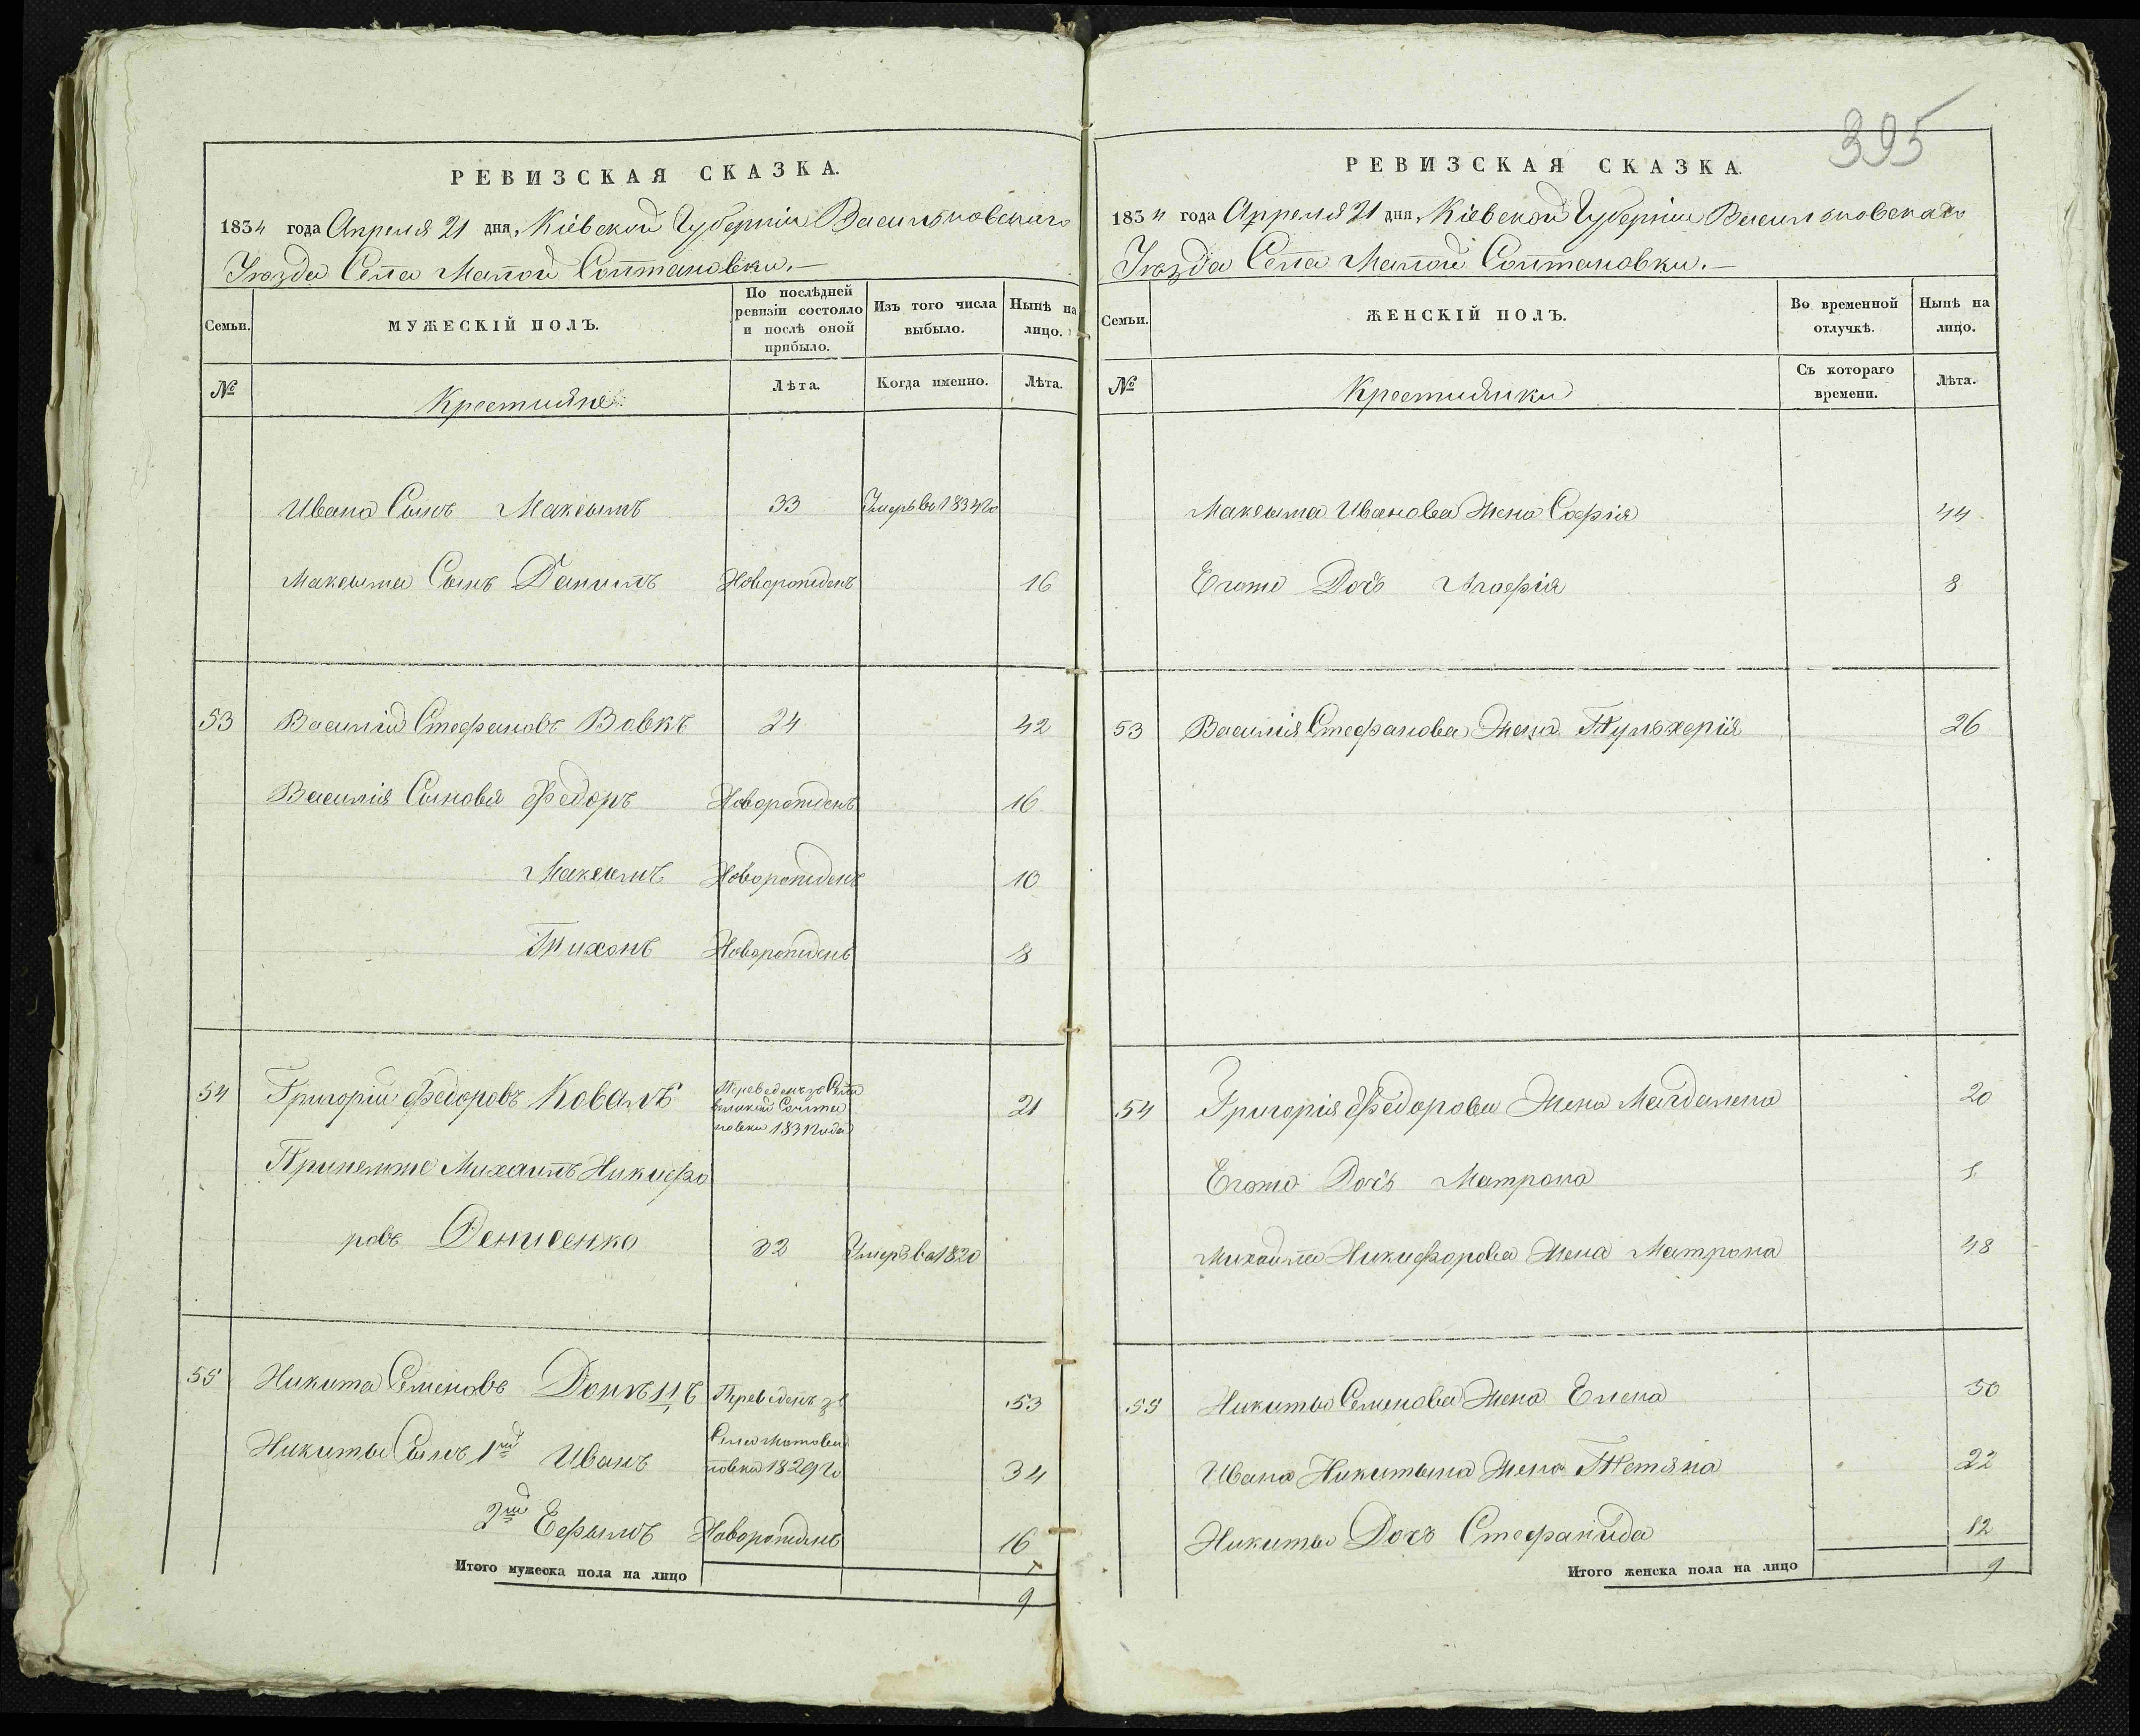 РЕВИЗСКАЯ СКАЗКА.
1834 года Апреля 21 дня, Кіевской Губерніи Васильковскаго
Уезда Села Малой Солтановки.—
Семьи.
МУЖЕСКІЙ ПОЛЪ.
По послѣдней
ревизіи состояло
и послѣ оной
прибыло.
Изъ того числа
выбыло.
Нынѣ на
лицо.
№
Крестияне
Лѣта.
Когда именно.
Лѣта.
Ивана Сынъ Максымъ 33 Умеръ во 1834 го
Максыма Сынъ Данилъ Новорожденъ 16
53 Василій Стефановъ Вовкъ 24 42
Василия Сыновя Федоръ Новорожденъ 16
Максымъ Новорожденъ 10
Тихонъ Новорожденъ 8
54 Григорій Федоровъ Коваль 21
Переведенъ зъ Села
великой Солта
новки 1831 года
Прыемыше Михаилъ Никифо
ровъ Денисенко 32 Умеръ во 1820
55 Никита Семеновъ Донъцъ Переведенъ зъ 53
Села
новки 1829 го
Никиты Сынъ 1й Иванъ 34
2й Ефымъ Новорожденъ 16
Итого мужеска пола на лицо
9
395
РЕВИЗСКАЯ СКАЗКА.
1834 года Апреля 21 дня, Кіевской Губерніи Васильковскаго
Уезда Села Малой Солтановки.—
Семьи.
ЖЕНСКІЙ ПОЛЪ.
Во временной
отлучкѣ.
Нынѣ на
лицо.
№
Крестиянки
Съ котораго
времени.
Лѣта.
Максыма Иванова Жена Софія 44
Егоже Дочь Агафія 8
53 Василия Стефанова Жена Пульхерія 26
54 Григорія Федорова Жена Магдалена 20
Егоже Дочь Матрона
Михайла Никифорова Жена Матрона 48
55 Никиты Семенова Жена Елена 50
Ивана Никитына Жена Тетяна 22
Никиты Дочь Стефанида 12
Итого женска пола на лицо 9